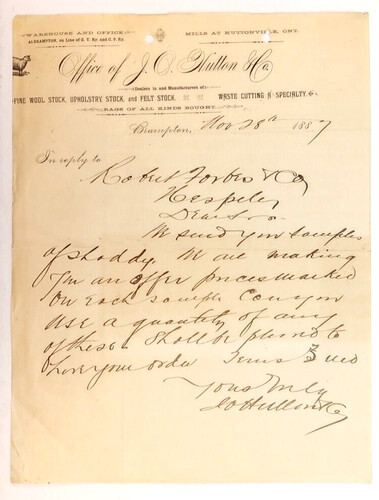 WAREHOUSE AND OFFICE
At BRAMPTON, on Line of G. T. Ry. and C. P. Ry.
MILLS AT HUTTONVILLE, ONT.
Office of J. O. Hutton & Co.
Dealers in and Manufacturers of:
FINE WOOL STOCK, UPHOLSTRY, STOCK, and FELT STOCK. WASTE CUTTING A SPECIALTY.
RAGS OF ALL KINDS BOUGHT.
Brampton, Nov 28th 1887
In reply to
Robert Forbes & Co
Hespeler
Dear Sir
We send you samples
of shoddy. We are making
you an offer prices marked
on each sample Can you
use a quantity of any
of these. Shall be pleased to
have your order Terms 3
Yours Truly
J O Hutton & Co